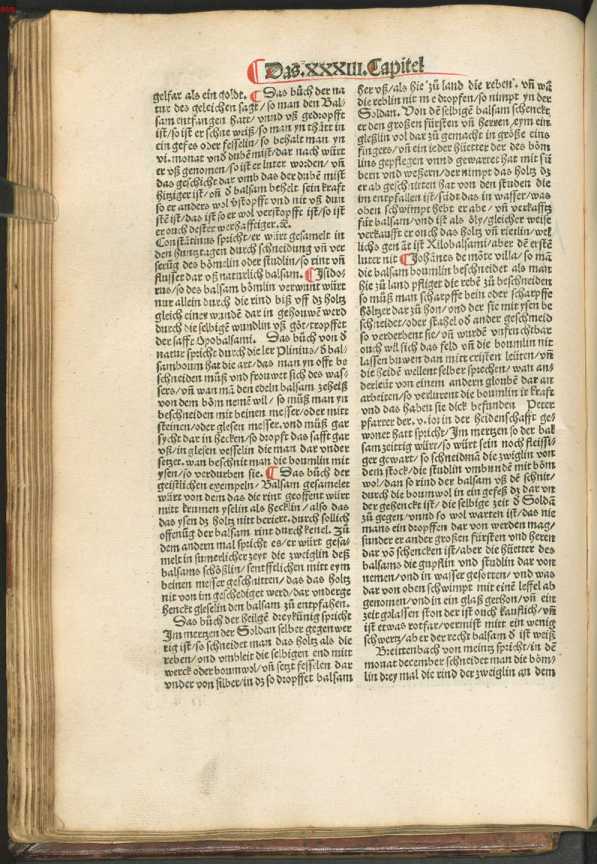 Das .XXXIII. Capitel
gelfar als ein goldt. Das bůch der na
tur des geleichen sagt/ so man den Bal-
sam entfangen hatt/ vnnd vß gedropfft
ist/ so ist er schne weiß/ so man yn thůtt in
ein gefes oder fesselin/ so behalt man yn
vi. monat vnd dubē mist/ dar nach würt
er vß genomen/ so ist er luter worden/ vn̄
das geschicht dar vmb das der dubē mist
hitziger ist/ on̄ d balsam behelt sein krafft
so er anders wol v̄stopfft vnd nit vß dun
stē ist/ das ist so er wol verstopfft ist/ so ist
er ouch dester werhafftiger. ⁊c.
Constātinus spricht/ er würt gesamelt in
den hunsttagen durch schneidung vn̄ ver
serūg des bömelin oder studlin/ so rint vn̄
flusset dar vß naturlich balsam. Isido-
rus/ so des balsam bömlin verwunt würt
nur allein durch die rind biß vff dz holtz
gleich eines wundē dar in gehouwē werd
durch die selbige wundlin vß göt/ tropffet
der saffe Opobalsami. Das bůch von d
natur spricht durch die ler Plinius/ d bal-
samboum hat die art/ das man yn offt be
schneiden můß vnd frouwet sich des was-
sers/ vn̄ wan mā den edeln balsam zeheiß
von dem böm nemē wil/ so můß man yn
bescheiden mit beinen messer/ oder mitt
steinen/ oder glesen messer. vnd můß gar
sycht dar in hecken/ so dropfft das safft gar
vß/ in glesen vesselin die man dar vnder
setzet. wan beschnit man die boumlin mit
ysen/ so verdurben sie. Das bůch der
geistlichen exempeln/ Balsam gesamelet
würt von dem das die rint geoffent würt
mitt krumen yselin als hecklin/ also das
das ysen dz holtz nitt beriert. durch sollich
offenūg der balsam rint durch kenel. Zů
dem andern mal spricht es/ er würt gesa-
melt in sumerlicher zeyt die zweiglin deß
balsams schößlin/ sentfftelichen mitt eym
beinen messer geschnitten/ das das holtz
nit von im geschediget werd/ dar vnderge
henckt gleselin den balsam zů entpfahen.
Das bůch der heilgē dreykünig spricht
Jm mertzen der Soldan selber gegenwer
tig ist/ so schneidet man das holtz als die
reben/ vnd vmbleit die selbigen end mitt
werck oder boumwol/ vn̄ setzt fesselen dar
vnder von silber/ in dz so dropffet balsam
her vß/ als hie zů land die reben. vn̄ wā
die reblin nit me dropfen/ so nimpt yn der
Soldan. Von dē selbigē balsam schenckt
er den großen fürsten vn̄ herren/ eym ein
gleßlin vol dar zů gemacht in größe eins
fingers/ vn̄ ein ieder hüetter der des böm
lins gepflegen vnnd gewartet hat mit sü
bern vnd weßern/ der nimpt das holtz dz
er ab geschnitten hat von den studen die
im entpfallen ist/ südt das in wasser/ was
oben schwimpt hebt er abe/ vn̄ verkaufftz
für balsam/ vnd ist als öly/ gleicher weise
verkaufft er ouch das holtz vn̄ rietlin/ wel
lichs genāt ist Xilobalsami/ aber dē erstē
luter nit Johānes de mōte villa/ so mā
die balsam boumlin bescheidet als man
hie zů land pfliget die rebē zů bescheiden
so můß man scharpffe bein oder scharpffe
hölzer dar zů hon/ vnd der sie mit ysen be
schneidet/ oder stahel od ander geschmeid
so verderbent sie/ vn̄ wurdē vnfruchtbar
ouch will sich das feld vn̄ die boumlin nit
lassen buwen dan mitt cristen leüten/ vn̄
die heidē wellent selber sprechen/ wan an-
derleüt von einem andern glonbē dar an
arbeiten/ so verlurent die boumlin ir krafft
vnd das haben sie dick befunden Peter
pfarrer der. v. iar in der heidenschafft ge-
wonet hatt spricht/ Jm mertzen so der bal
sam zeittig würt/ so würt sein noch fleissi-
ger gewart/ so schneidmā die zwiglin von
dem stock/ die studlin vmbundē mit böm
wol/ dan so rind der balsam vß dē schnit/
durch die boumwol in ein gefeß dz dar vn
der gehenckt ist/ die selbige zeit d Soldā
zů gegen/ vnnd so wol warten ist/ das nie
mans ein dropffen dar von werden mag/
sunder er ander großen fürsten vnd herrn
dar vō schencken ist/ aber die hüetter des
balsams die gupflin vnd studlin dar von
nemen/ vnd in wasser gesotten/ vnd was
dar von oben schwimpt mit einē leffel ab
genomen/ vnd in ein glaß gethon/ vn̄ ein
zeit gelassen ston der ist ouch kauflich/ vn̄
ist etwas rotfar/ vermist mitt ein wenig
schwertz/ aber der recht balsam d ist weiß
Breittenbach von meintz spricht/ in dē
monat december schneidet man die böm-
lin drey mal die rind der zweiglin an dem